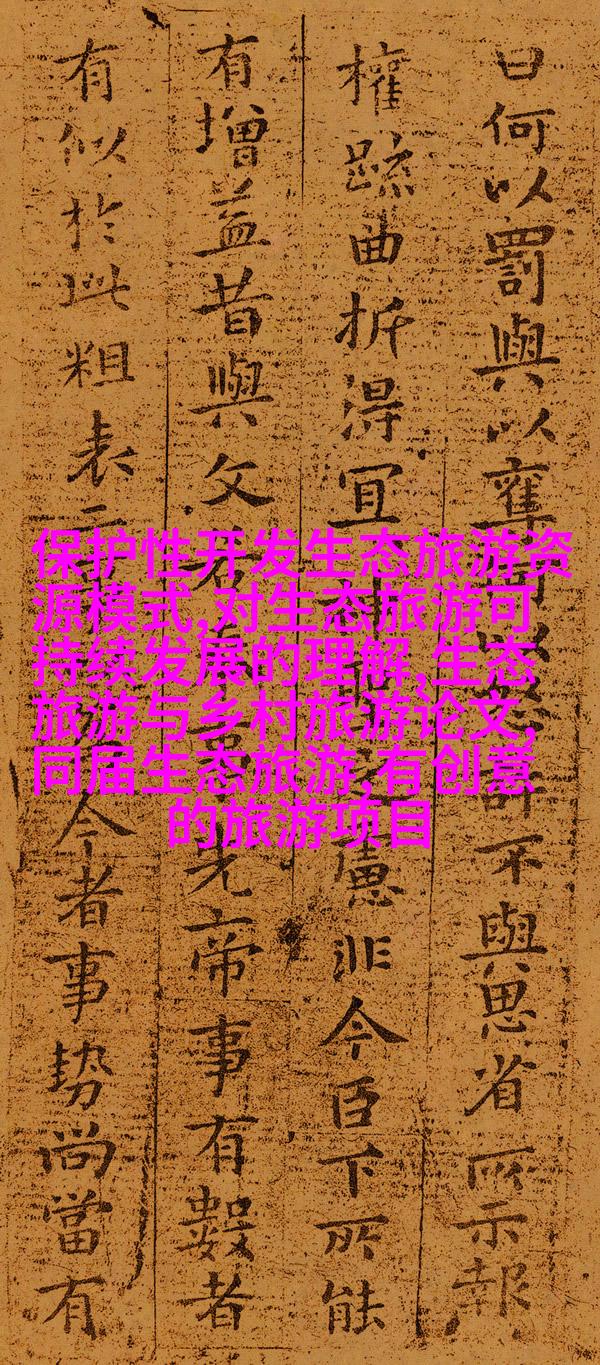 曰何以罰與以奪以怒許不與思省所示報
權疏曲折得宜慮非今臣下所能
有增益昔與文若事先帝事有數者
有似於此粗表二今者事勢尚當有
保护性开发生态旅游资
源模式,对生态旅游可
持续发展的理解,生态
旅游与乡村旅游论文,
同届生态旅游,有创意
的旅游项目